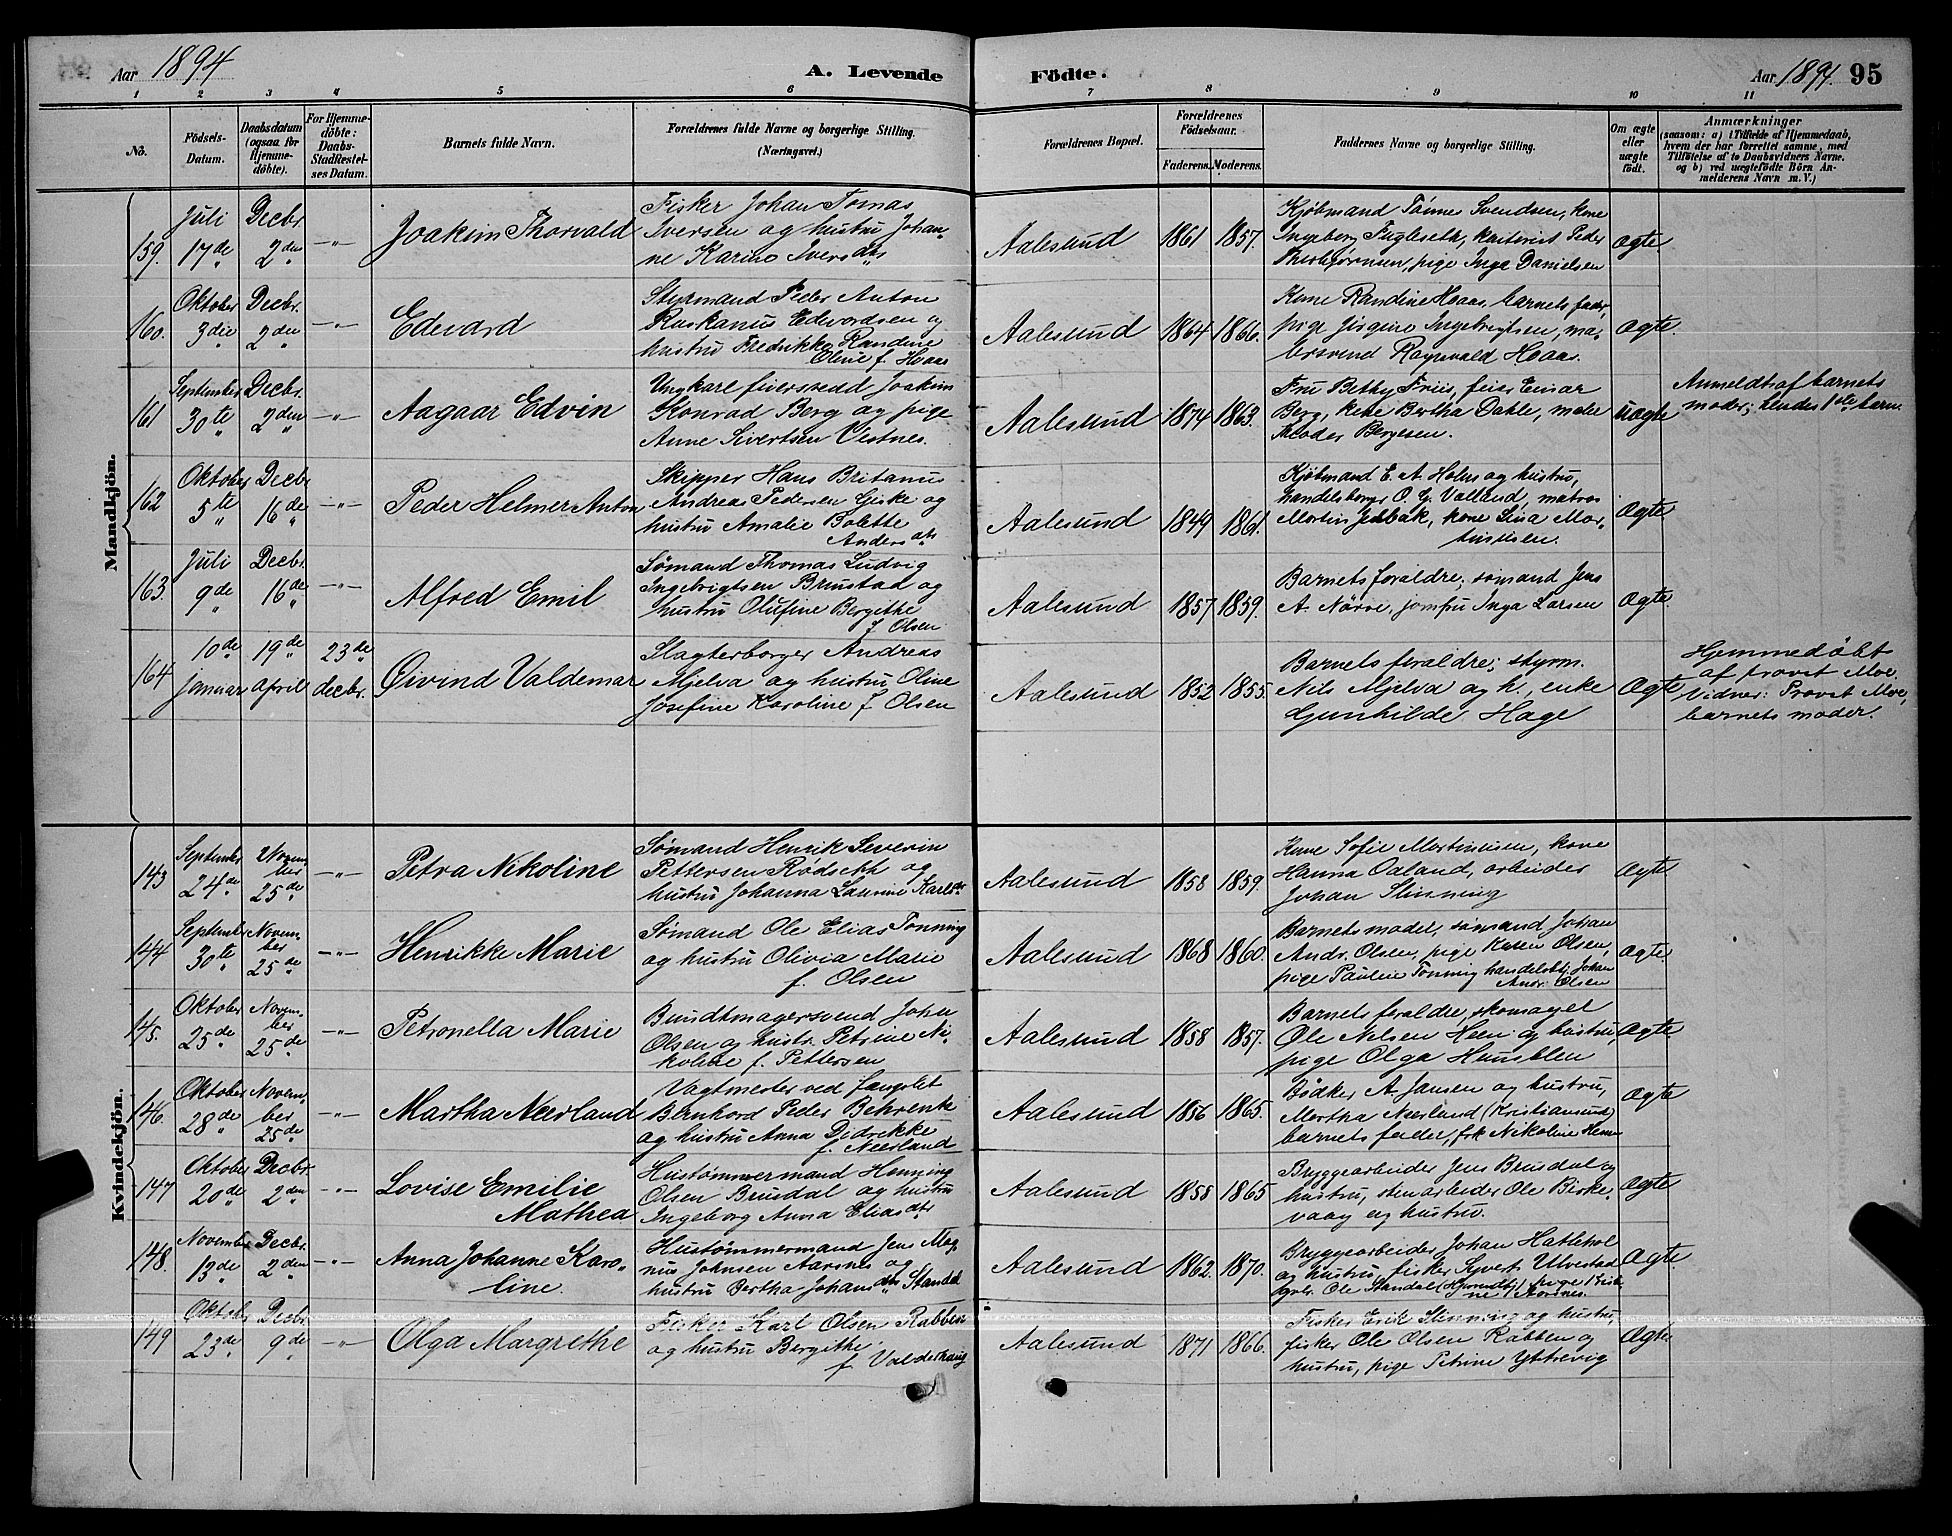 Aar 1894
A. Levende
Födte.
Aar 1894. 95
1 2 3 4 5 6 7 8 9 10 11
No.
Födsels-Datum.
Daabsdatum (ogsaa for Hjemme-döbte).
For Hjemme-döbte: Daabs-Stadfæstel-ses Datum.
Barnets fulde Navn.
Forældrenes fulde Navne og borgerlige Stilling. (Næringsvei.)
Forældrenes Bopæl.
Forældrenes Födselsaar.
Faderens. Moderens.
Faddernes Navne og borgerlige Stilling.
Om ægte eller uægte födt.
Anmærkninger
(saasom: a) i Tilfælde af Hjemmedaab, hvem der har forrettet samme, med Tilföielse af to Daabsvidners Navne. og b) ved uægtefödte Börn Anmelderens Navn m. V.)
Mandkjön.
159. Juli 17de Decbr. 2den -"- Joakim Thorvald
Fisker Johan Tomas
Iversen og hustru Johan-
ne Karine Iversdtr
Aalesund 1861 1857.
Kjøbmand Tønne Svendsen, kone
Ingeborg Fugleseth, Peder
Thorbjørnsen, pige Inga Danielsen
Ægte.
160. Oktober 3die Decbr. 2den -"- Edevard
Styrmand Peder Anton
Edvardsen og
hustru Fredrikke Randine
Oline f. Hoaas
Aalesund 1864 1866.
Kone Randine Hoaas, barnets fader,
pige Ingebrigtsen, ma-
lersvend Ragnvald Hoaas.
Ægte.
161 September 30te Decbr. 2den -"- Aagaar Edvin
Ungkarl feiersvend Joakim
Konrad Berg og pige
Anne Sivertsen Vestnes.
Aalesund 1874 1863.
Fru Bethy Friis, feier Einar
Berg, Bertha Dahle, maler
Theodor Bergesen.
uægte
Anmeldt af barnets
moder; hendes 1ste barn.
162 Oktober 5te Decbr 16de -"- Peder Helmer Anton
Skipper Hans Britanus
Andreas Pedersen Giske og
hustru Amalie Bolette
Andersdtr
Aalesund 1849 1861.
Kjøbmand E. A. Holm og hustru,
handelsborger O. G. Valland, matros
Martin, kone Lina Mar-
tinusen.
Ægte
163. Juli 9de Decbr. 16de -"- Alfred Emil
Sømand Thomas Ludvig
Ingebrigtsen Brustad og
hustru Olufine Bergithe
f Olsen
Aalesund 1857 1859.
Barnets foraldre; sømand Jens
A. Nörve, jomfru Inga Larsen
Ægte.
164 10de januar 19de April 23de decbr. Øivind Valdemar
Slagterborger Andreas
Mjelva og hustru Oline
Josefine Karoline f Olsen
Aalesund 1852 1855.
Barnets foraldre; styrm.
Nils Mjelva og h., enke
Gunhilde Hage
Ægte
Hjemmedøbt
af provst Moe.
Vidner: Provst Moe,
barnets moder.
Kvindekjön.
143 September 24de Novem-ber 25de -"- Petra Nikoline
Sømand Henrik Severin
Pettersen Rødseth og
hustru Johanna Laurine Karlsdtr
Aalesund 1858 1859.
Kone Sofie Martinusen, kone
Hanna Oaland, arbeider
Johan Slinning
Ægte
144 Septembr 30te Novem-ber 25de -"- Henrikke Marie
Sømand Ole Elias Tonning
og hustru Olivia Marie
f. Olsen
Aalesund 1868 1860.
Barnets moder, sømand Johan
Andr. Olsen, pige Karen Olsen,
pige Pauline Tonning handelsbtj. Johan
Andr. Olsen
ægte.
145. Oktober 25de Novem-ber 25de -"- Petronella Marie
Bundtmagersvend Johan
Olsen og hustr. Petrine Ni-
koline f. Pettersen
Aalesund 1858 1857.
Barnets foraldre, skomager
Ole Nilsen Heen og hustru,
pige Olga Huusblen
Ægte
146. Oktober 28de Novem-ber 25de -"- Martha Neerland
Vagtmester ved fængslet
Bernhard Peder Behrentz
og hustru Anna Didrikke
f. Neerland
Aalesund 1856 1865.
Bødker A. Jansen og hustru,
Martha Neerland (Kristiansund)
barnets fader, frk Nikoline
Ægte
147 Oktober 20de Decbr. 2den -"- Lovise Emilie
Mathea
Hustømmermand Henning
Olsen Brusdal og hustru
Ingeborg Anna Eliasdtr
Aalesund 1858 1865
Bryggearbeider Jens Brusdal og
hustru, stenarbeider Ole Birke-
vaag og hustru.
Ægte
148. November 13de Decbr. 2den -"- Anna Johanne Karo-
line.
Hustømmermand Jens Mag-
nus Johnsen Aarsnes og
hustru Bertha Johansdtr Standal
Aalesund 1862. 1870.
Bryggearbeider Johan Hatlehol
og hustru, fisker Syvert Ulvestad
Ole Standal (Hjørundfj) pige
Aarsnes.
Ægte
149 Oktobr 23de Decbr. 9de -"- Olga Margrethe
Fisker Karl Olsen Rabben
og hustru Bergithe
f Valderhaug
Aalesund 1871 1866.
Fisker Erik Slinning og hustru,
fisker Ole Olsen Rabben og
hustru, pige Petrine Yttrevig
Ægte